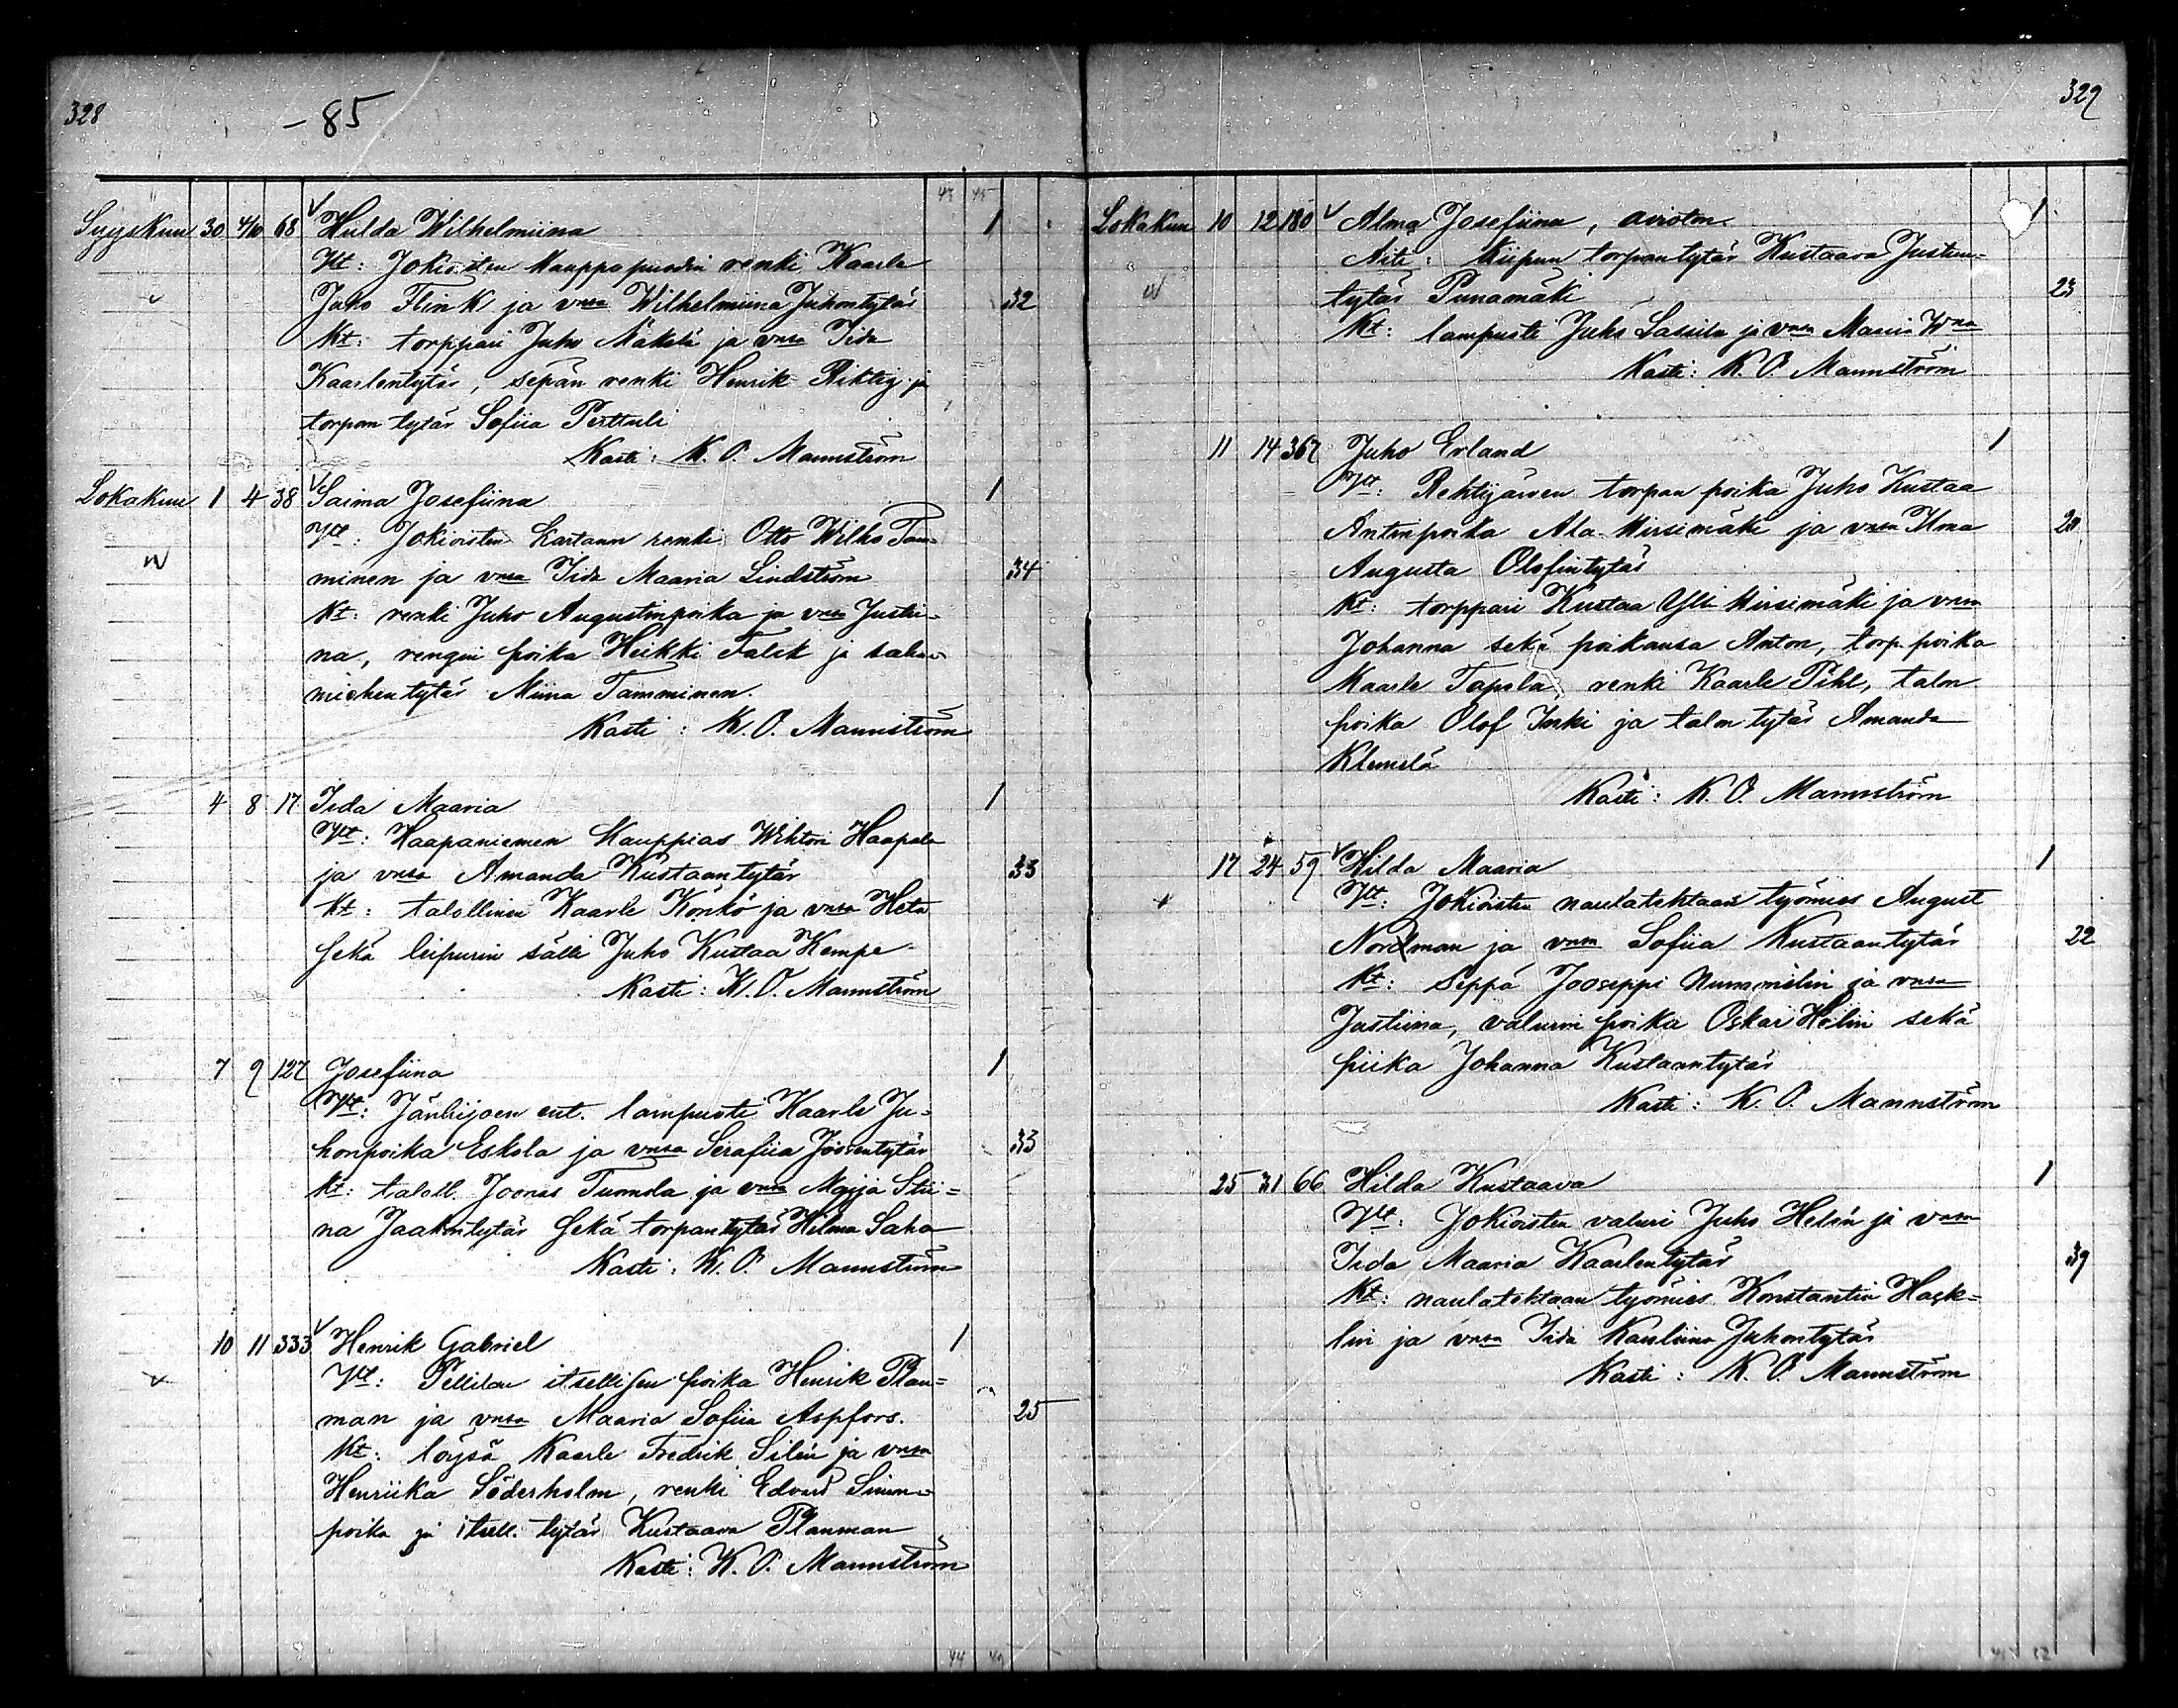 328
-85
Syyskuu 30 4/10 68 Hulda Wilhelmiina 1
Vht: Jokioisten Kauppapuodin renki Kaarle
Juho Flink ja vmsa Wilhelmiina Juhontytär 32
Kt: torppari Juho Mäkelä ja vmsa Iida
Kaarlentytär, sepän renki Henrik Riktig ja
torpan tytär Sofiia Perttuli
Kasti: K. O. Mannström
Lokakuu 1 4 38 Saima Josefiina 1
Vht: Jokioisten Kartanon renki Otto Wilho Tam-
minen ja vmsa Iida Maaria Lindström 34
Kt: renki Juho Augustinpoika ja vmsa Justii-
na, rengin poika Heikki Falik ja
miehen tytär Miina Tamminen.
Kasti: K. O. Mannström
4 8 17 Iida Maaria 1
Vht: Haapaniemen Kauppias Wihtori Haapala
ja vmsa Amanda Kustaantytär 33
Kt: talollinen Kaarle Könkö ja vmsa Heta
sekä leipurin sälli Juho Kustaa Kempe
Kasti: K. O. Mannström
7 9 127 Josefiina 1
Vht: Jänhijoen ent. lampuoti Kaarle Ju-
honpoika Eskola ja vmsa Serafiia Joosentytär 33
Kt: taloll. Joonas Tuomola ja vmsa Maija Stii-
na Jaakontytär sekä torpantytär Hilma Saha
Kasti: K. O. Mannström
10 11 333 Henrik Gabriel 1
Vht: Pellilän itsellisen poika Henrik Plan-
man ja vmsa Maaria Sofiia Aspfors. 25
Kt: löysä Kaarle Fredrik Silén ja vmsa
Henriika Söderholm, renki Edvard Simon-
poika ja itsell. tytär Kustaava Planman
Kasti: K. O. Mannström
329
Lokakuu 10 12 180 Alma Josefiina, avioton. 1
Äiti: Kiipun torpantytär Kustaava Justiinan-
tytär Punamäki 23
Kt: lampuoti Juho Lassila ja vmsa Maria Wna
Kasti: K. O. Mannström
11 14 367 Juho Erland 1
Vht: Rehtijärven torpan poika Juho Kustaa
Antinpoika Ala-Kirsimäki ja vmsa Ilma 20
Augusta Olofintytär
Kt: torppari Kustaa Yli-Kirsimäki ja vmsa
Johanna sekä poikansa Anton, torp. poika
Kaarle Tapola, renki Kaarle Pihl, talon
poika Olof Inki ja talon tytär Amanda
Klemelä
Kasti: K. O. Mannström
17 24 59 Hilda Maaria 1
Vht: Jokioisten naulatehtaan työmies August
Nordman ja vmsa Sofiia Kustaantytär 22
Kt: Seppä Jooseppi Nummelin ja vmsa
Justiina, valurin poika Oskar Helin sekä
piika Johanna Kustaantytär
Kasti: K. O. Mannström
25 31 66 Hilda Kustaava 1
Vht: Jokioisten valuri Juho Helén ja vmsa
Iida Maaria Kaarlentytär 39
Kt: naulatehtaan työmies Konstantin Hack-
lin ja vmsa Iida Karoliina Juhontytär
Kasti: K. O. Mannström